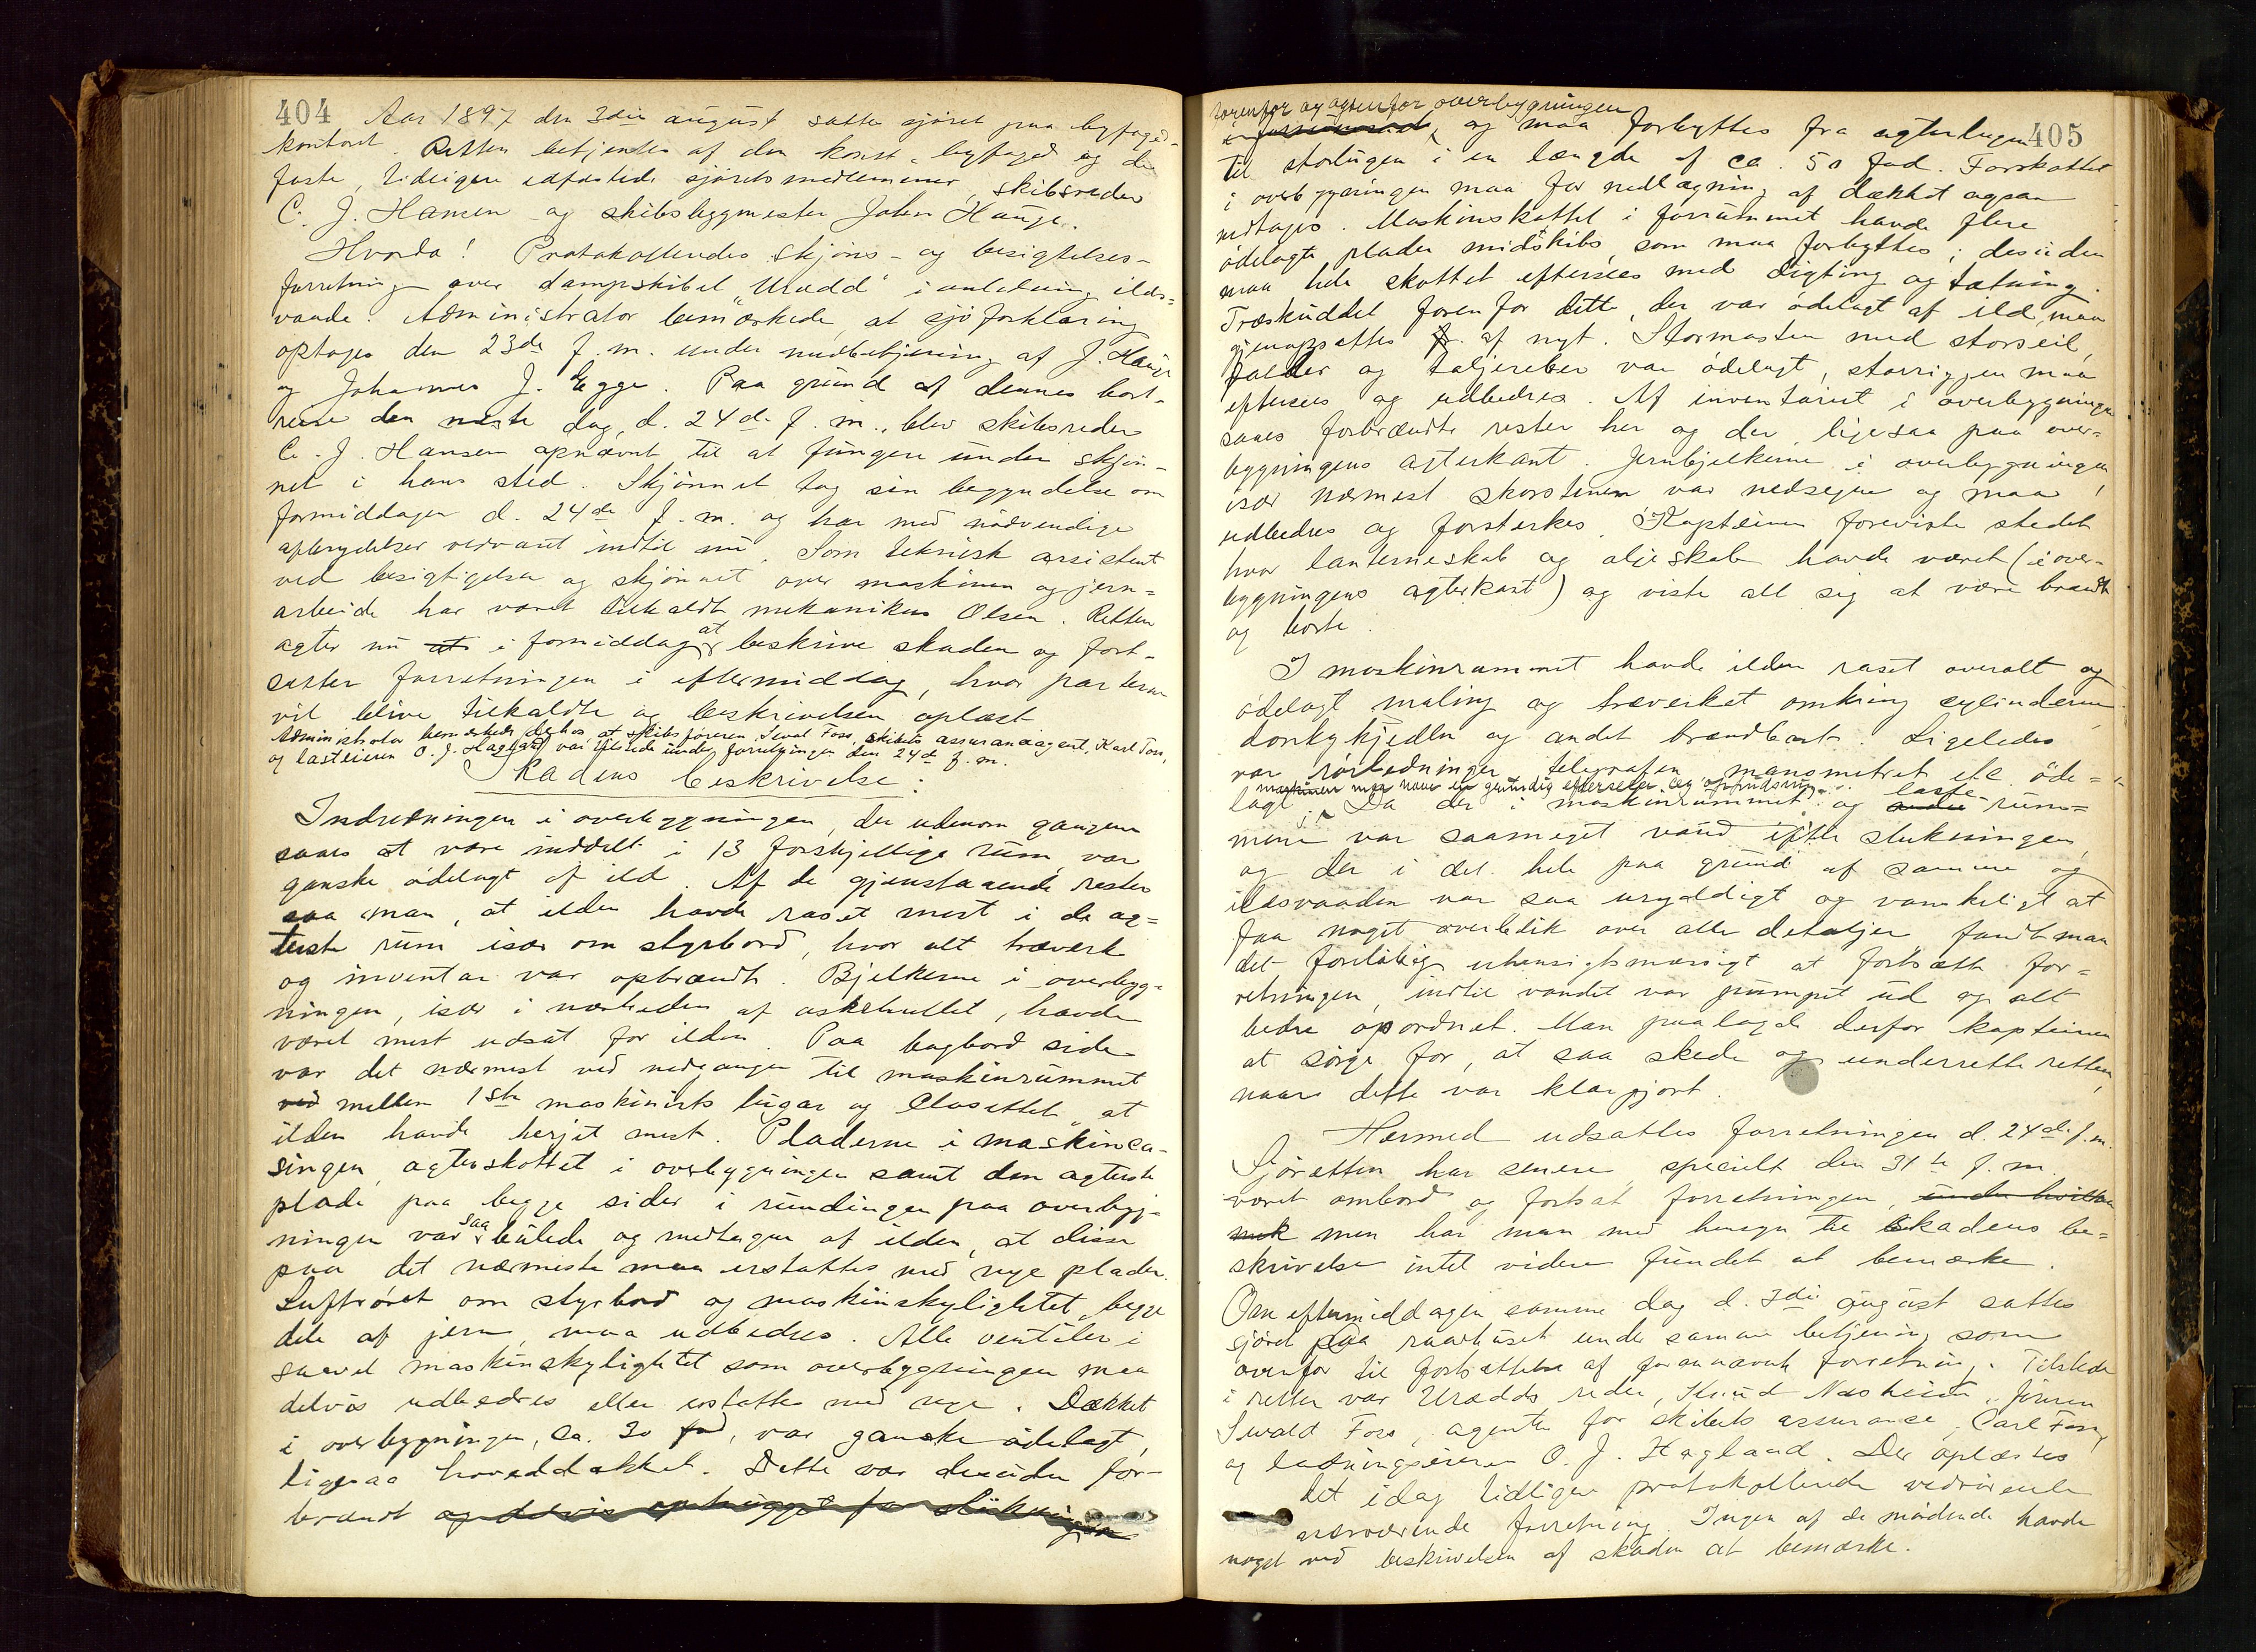 404 Aar 1897 den 3die august sattes sjöret paa byfoged-
kontoret. Retten betjentes af den konst. byfoged og de
faste, tidligere edfæstede sjöretsmedlemmer, skibsreder
C. J. Hansen og skibsbyggmester John Hauge.
Hvorda! Protokollendes skjöns- og besigtelses-
forretning over dampskibet "Urædd" i anledning ilds-
vaade. Administrator bemærkede, at sjöforklaring
optoges den 23de f. m. under medbetjening af J. Hauge
og Johannes J. Egge. Paa grund af dennes bort-
reise den næste dag, d. 24de f. m., blev skibsreder
C. J. Hansen opnævnt til at fungere under skjön-
net i hans sted. Skjönnet tog sin begyndelse om
formiddagen d. 24de f. m. og har med nödvendige
afbrydelser vedvaret indtil nu. Som teknisk assistent
ved besigtigelse og skjönnet over maskinen og jern-
arbeide har været tilkaldt mekanikus Olsen. Retten
agter nu at i formiddag at beskrive skaden og fort-
sætter forretningen i eftermiddag, hvor parterne
vil blive tilkaldte og beskrivelsen oplæst
Administrator bemærkede derhos, at skibsföreren, Sivald Foss, skibets assuranceagent, Karl Foss,
og lasteieren O. J. Hagland var tilstede under forretningen den 24de f. m.
Skadens beskrivelse:
Indredningen i overbygningen, der udenom gangene
saaes at være inddelt i 13 forskjellige rum, var
ganske ödelagt af ild. Af de gjenstaaende rester
saa man, at ilden havde raset mest i de ag-
terste rum især om styrbord, hvor alt træverk
og inventar var opbrændt. Bjelkerne i overbyg-
ningen, især i nærheden af askehullet, havde
været mest udsat for ilden. Paa bagbord side
var det nærmest ved nedgangen til maskinrummet
ved mellem 1ste maskinists lugar og Closettet at
ilden havde herjet mest. Pladerne i maskinca-
singen, agterskottet i overbygningen samt den agterste
plade paa begge sider i rundingen paa overbyg-
ningen var saa bulede og medtagne af ilden, at disse
paa det nærmeste maa erstattes med nye plader.
Luftröret om styrbord og maskinskylightet, begge
dele af jern, maa udbedres. Alle ventiler i
saavel maskinskylightet som overbygningen maa
delvis udbedres eller erstattes med nye. Dækket
i overbygningen, ca. 30 fod, var ganske ödelagt,
ligesaa hoveddækket. Dette var desuden for-
brændt og delvis ophugget for slukningen
405
forenfor og agtenfor overbygningen
og maa forbyttes fra agterlugen
til storlugen i en længde af ca. 50 fod. Forskottet
i overbygningen maa for nedlægning af dækket ogsaa
nedtages. Maskinskottet i forrummet havde flere
ödelagte plader midtskibs, som maa forbyttes; desuden
maa hele skottet eftersees med digting og tætning.
Træskuddet forenfor dette, der var ödelagt af ild, maa
gjenopsættes af nyt. Stormasten med storseil,
falder og taljereber var ödelagt, storriggen maa
eftersees og udbedres. Af inventariet i overbygningen
saaes forbrændte rester her og der, ligesaa paa over-
bygningens agterkant. Jernbjelkerne i overbygningen,
især nærmest skorstenen var nedsegne og maa
udbedres og forsterkes. Kapteinen foreviste stedet
hvor lanterneskab og oljeskab havde været (i over-
bygningens agterkant) og viste alt sig at være brændt
og borte.
I maskinrummet havde ilden raset overalt og
ödelagt maling og træverket omkring cylinderen,
donkykjedlen og andet brændbart. Ligeledes
var rörledninger, telegrafen, manometret etc öde-
maskinen maa have en grundig eftersee og oppudsning
lagt. Da der i maskinrummet og laste rum-
mene var saameget vand efter slukningen,
og der i det hele paa grund af samme og
ildsvaaden var saa uryddigt og vanskeligt at
faa noget overblik over alle detaljer fandt man
det foreløbig uhensigtsmæssigt at fortsætte for-
retningen, indtil vandet var pumpet ud og alt
bedre opordnet. Man paalagde derfor kapteinen
at sörge for, at saa skede og underrette retten,
naar dette var klargjort.
Hermed udsattes forretningen d. 24de f. m.
Sjöretten har senere, specielt den 31te f. m.,
været ombord og fortsat forretningen, under hvilken
men har man med hensyn til skadens be-
skrivelse intet videre fundet at bemærke.
Om eftermiddagen samme dag d. 3die august sattes
sjöret paa raadhuset under samme betjening som
ovenfor til fortsættelse af forannævnte forretning. Tilstede
i retten var Urædds reder, Knud Nasheim, föreren
Sivald Foss, agenten for skibets assurance, Carl Foss,
og ladningseieren O. J. Hagland. Der oplæstes
det idag tidligere protokollerede vedrörende
nærværende forretning. Ingen af de mödende havde
noget ved beskrivelsen af skaden at bemærke.